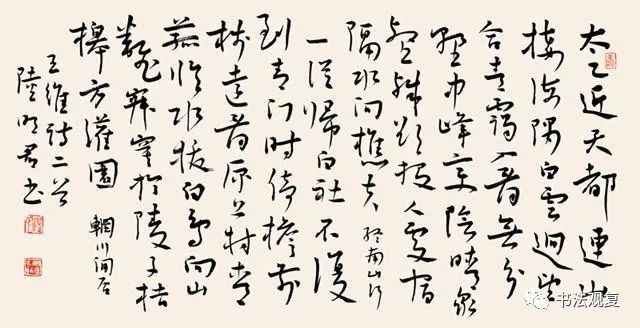 太乙近天都連山
接海隅白雲迴望
合青靄入看無分
野中峰变陰晴众
壑殊欲投人處宿
隔水问樵夫 终南山行
一從歸白社不復
到青门时倚檐前
树遠看原上村青
菰临水拔白鸟向山
翻寂寞於陵子桔
槔方灌園 輞川闲居
王維詩二首
陸明君书
书法观复